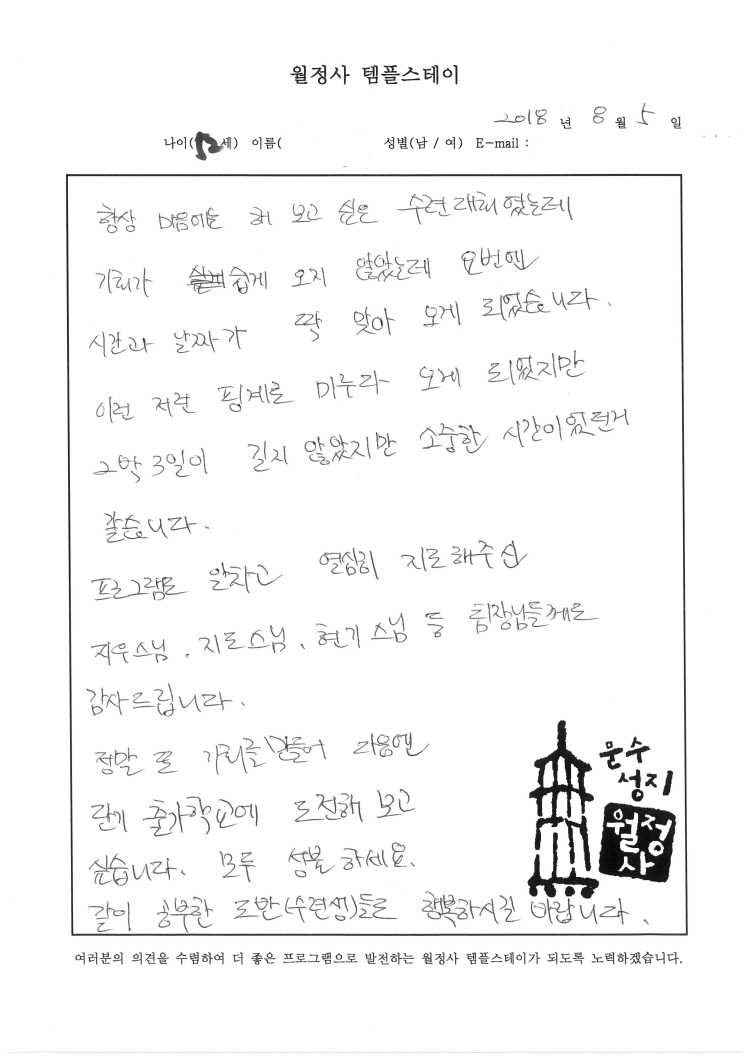 월정사 템플스테이
2018 년 8 월 5 일
나이( 세) 이름( 성별(남 / 여) E-mail :
항상 마음에는 해 보고 싶은 수련대회였는데
기회가 쉽게 오지 않았는데 요번엔
시간과 날짜가 딱 맞아 오게 되었습니다.
이런 저런 핑계로 미루다 오게 되었지만
2박 3일이 길지 않았지만 소중한 시간이였던거
같습니다.
프로그램도 알차고 열심히 지도해주신
지우스님, 지도스님, 현기스님 등 팀장님들께도
감사드립니다.
정말 또 기회를 만들어 다음엔
단기 출가학교에 도전해 보고
싶습니다. 모두 성불하세요.
같이 공부한 도반(수련생)들도 행복하시길 바랍니다.
문수
성지
월정
사
여러분의 의견을 수렴하여 더 좋은 프로그램으로 발전하는 월정사 템플스테이가 되도록 노력하겠습니다.